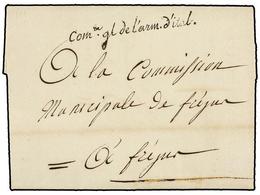 Com.re gl de l'arm. d'ital.
A la Commission
Municipale de fréjus
= A fréjus